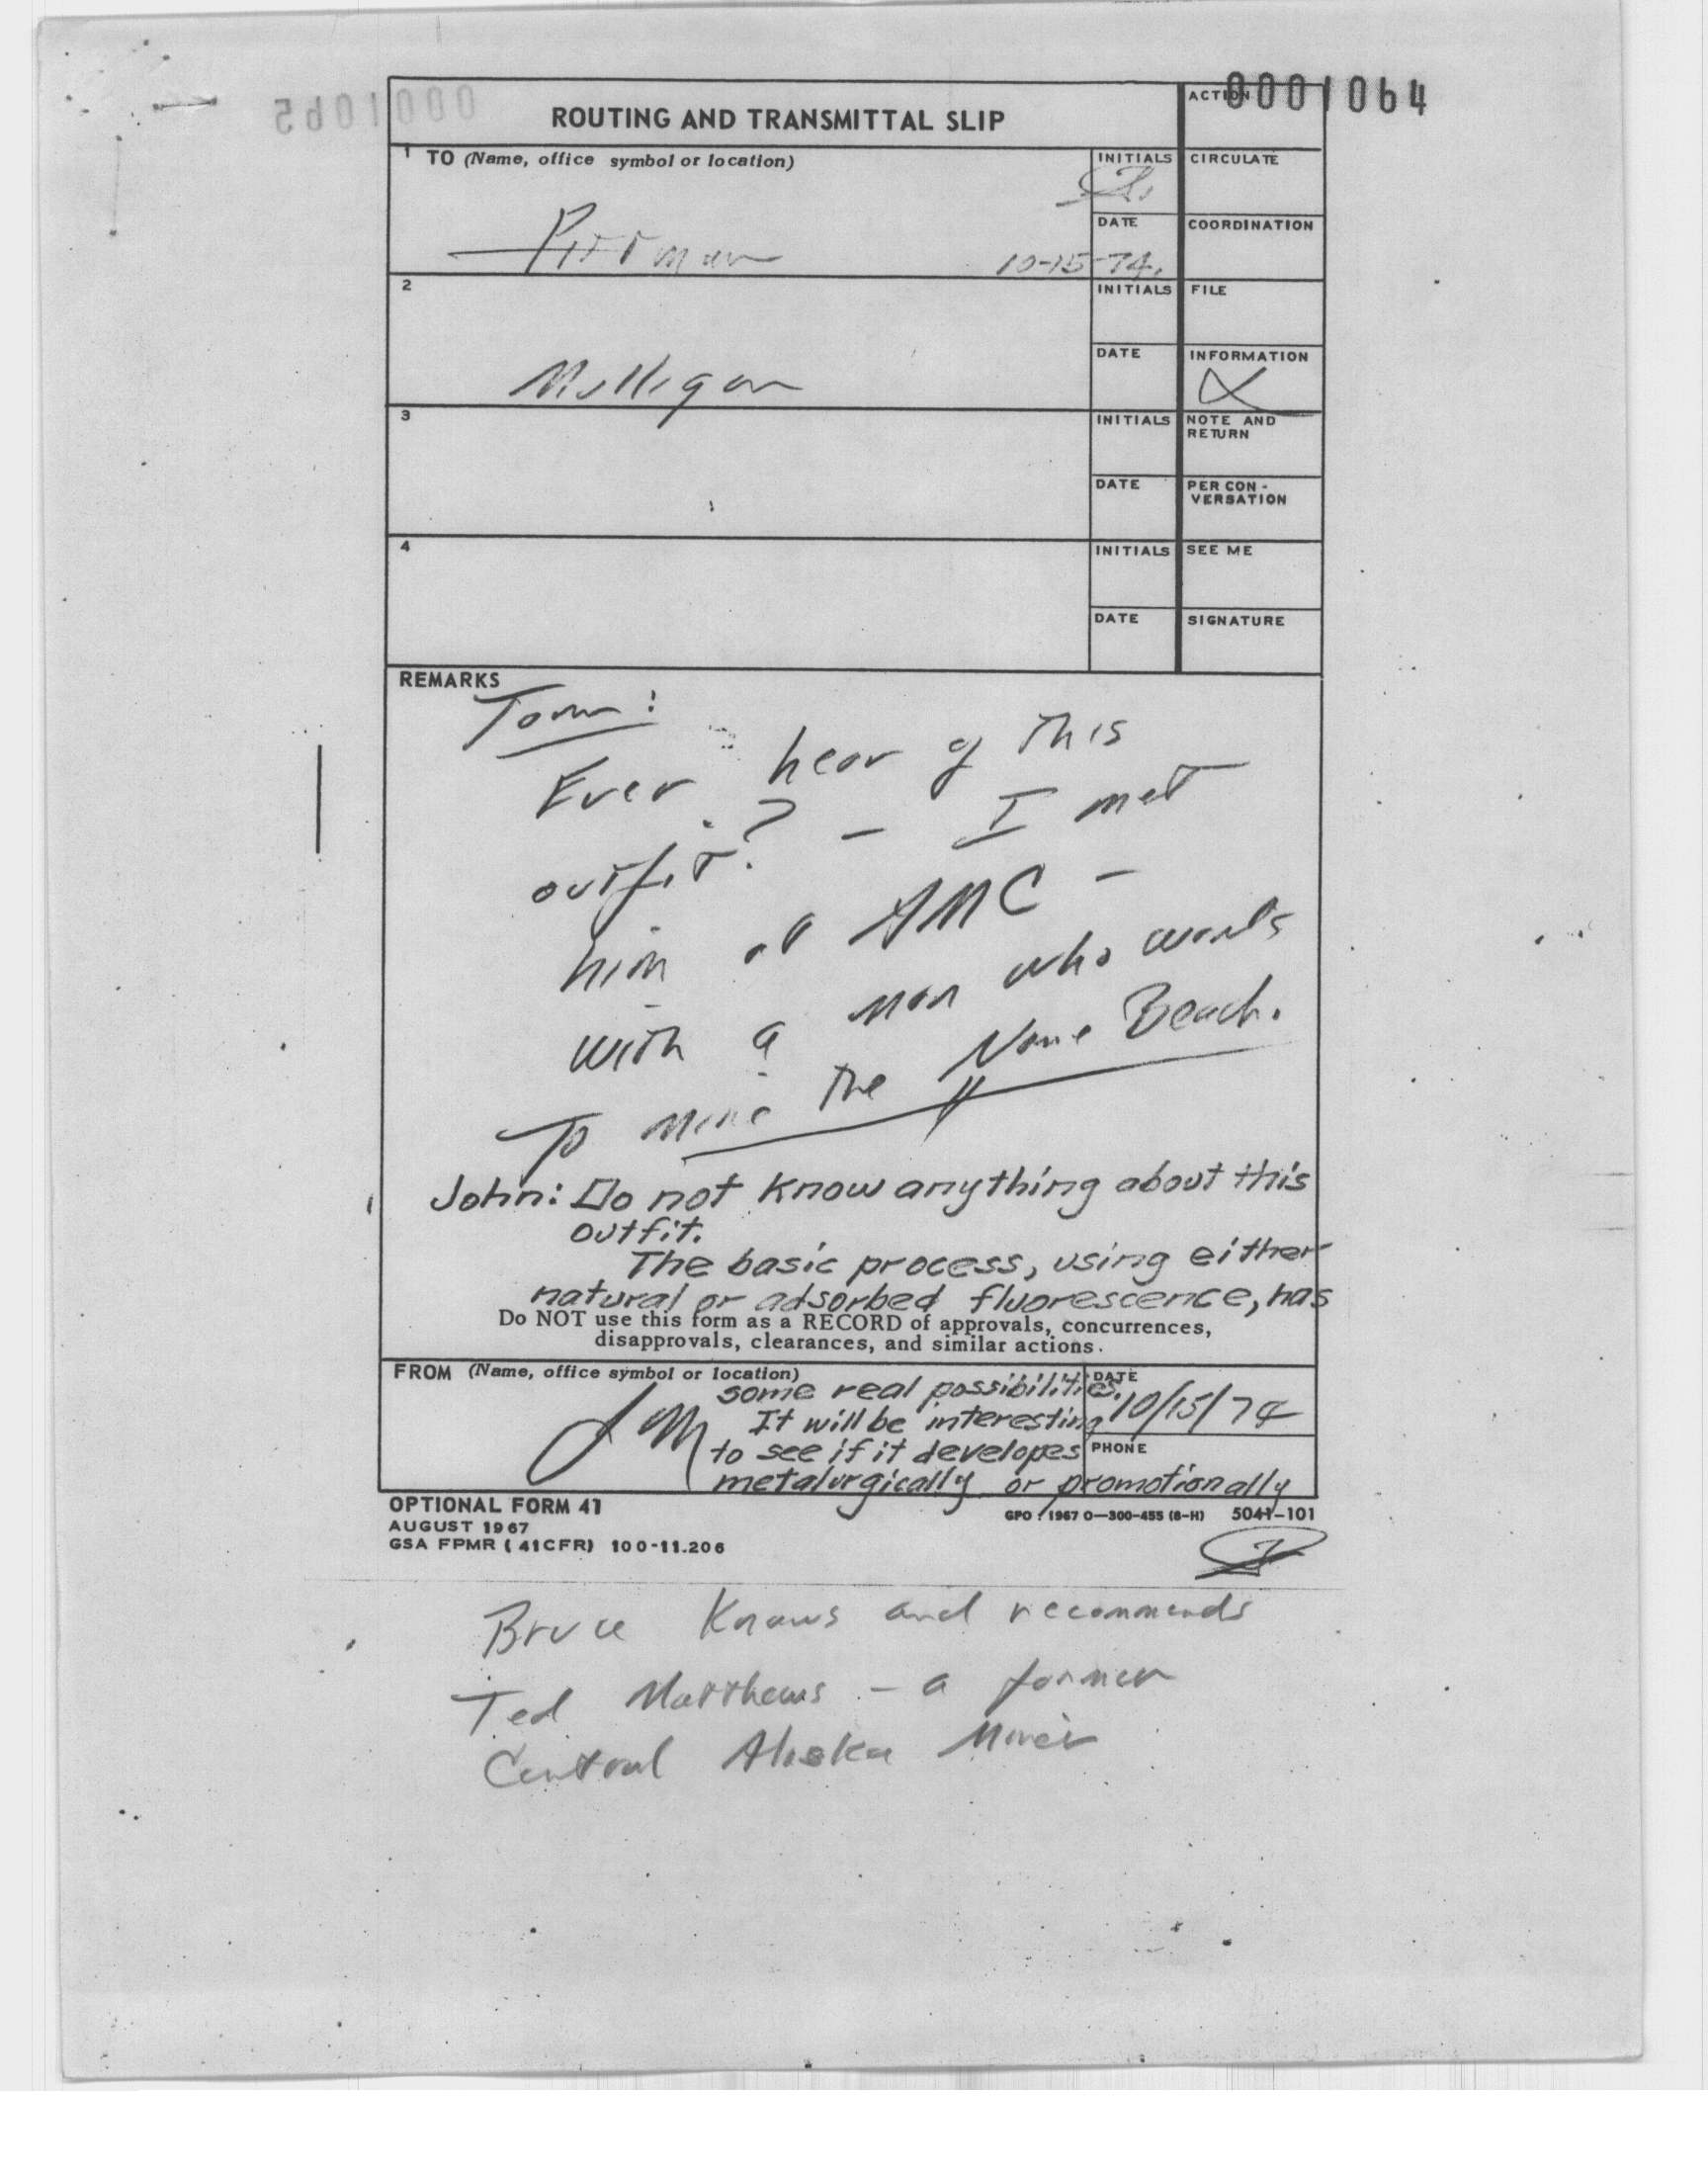 0001064
0001065
ROUTING AND TRANSMITTAL SLIP
ACTION
1 TO (Name, office symbol or location)
INITIALS
CIRCULATE
DATE
COORDINATION
Pittman
10-15-74.
2
INITIALS
FILE
DATE
INFORMATION
Mulligan
X
3
INITIALS
NOTE AND
RETURN
DATE
PER CON -
VERSATION
4
INITIALS
SEE ME
DATE
SIGNATURE
REMARKS
Tom:
Ever hear of this
outfit? – I met
him at AMC –
with a man who wants
To mine the Nome Beach.
John: Do not know anything about this
outfit.
The basic process, using either
natural or adsorbed fluorescence, has
Do NOT use this form as a RECORD of approvals, concurrences,
disapprovals, clearances, and similar actions.
FROM (Name, office symbol or location)
DATE
some real possibilities.
10/15/74
It will be interesting
JM
to see if it developes
PHONE
metalurgically or promotionally
OPTIONAL FORM 41
AUGUST 1967
GSA FPMR (41CFR) 100-11.206
GPO : 1967 O—300-455 (8-H) 5041-101
Bruce Knows and recommends
Ted Matthews – a former
Central Alaska Miner